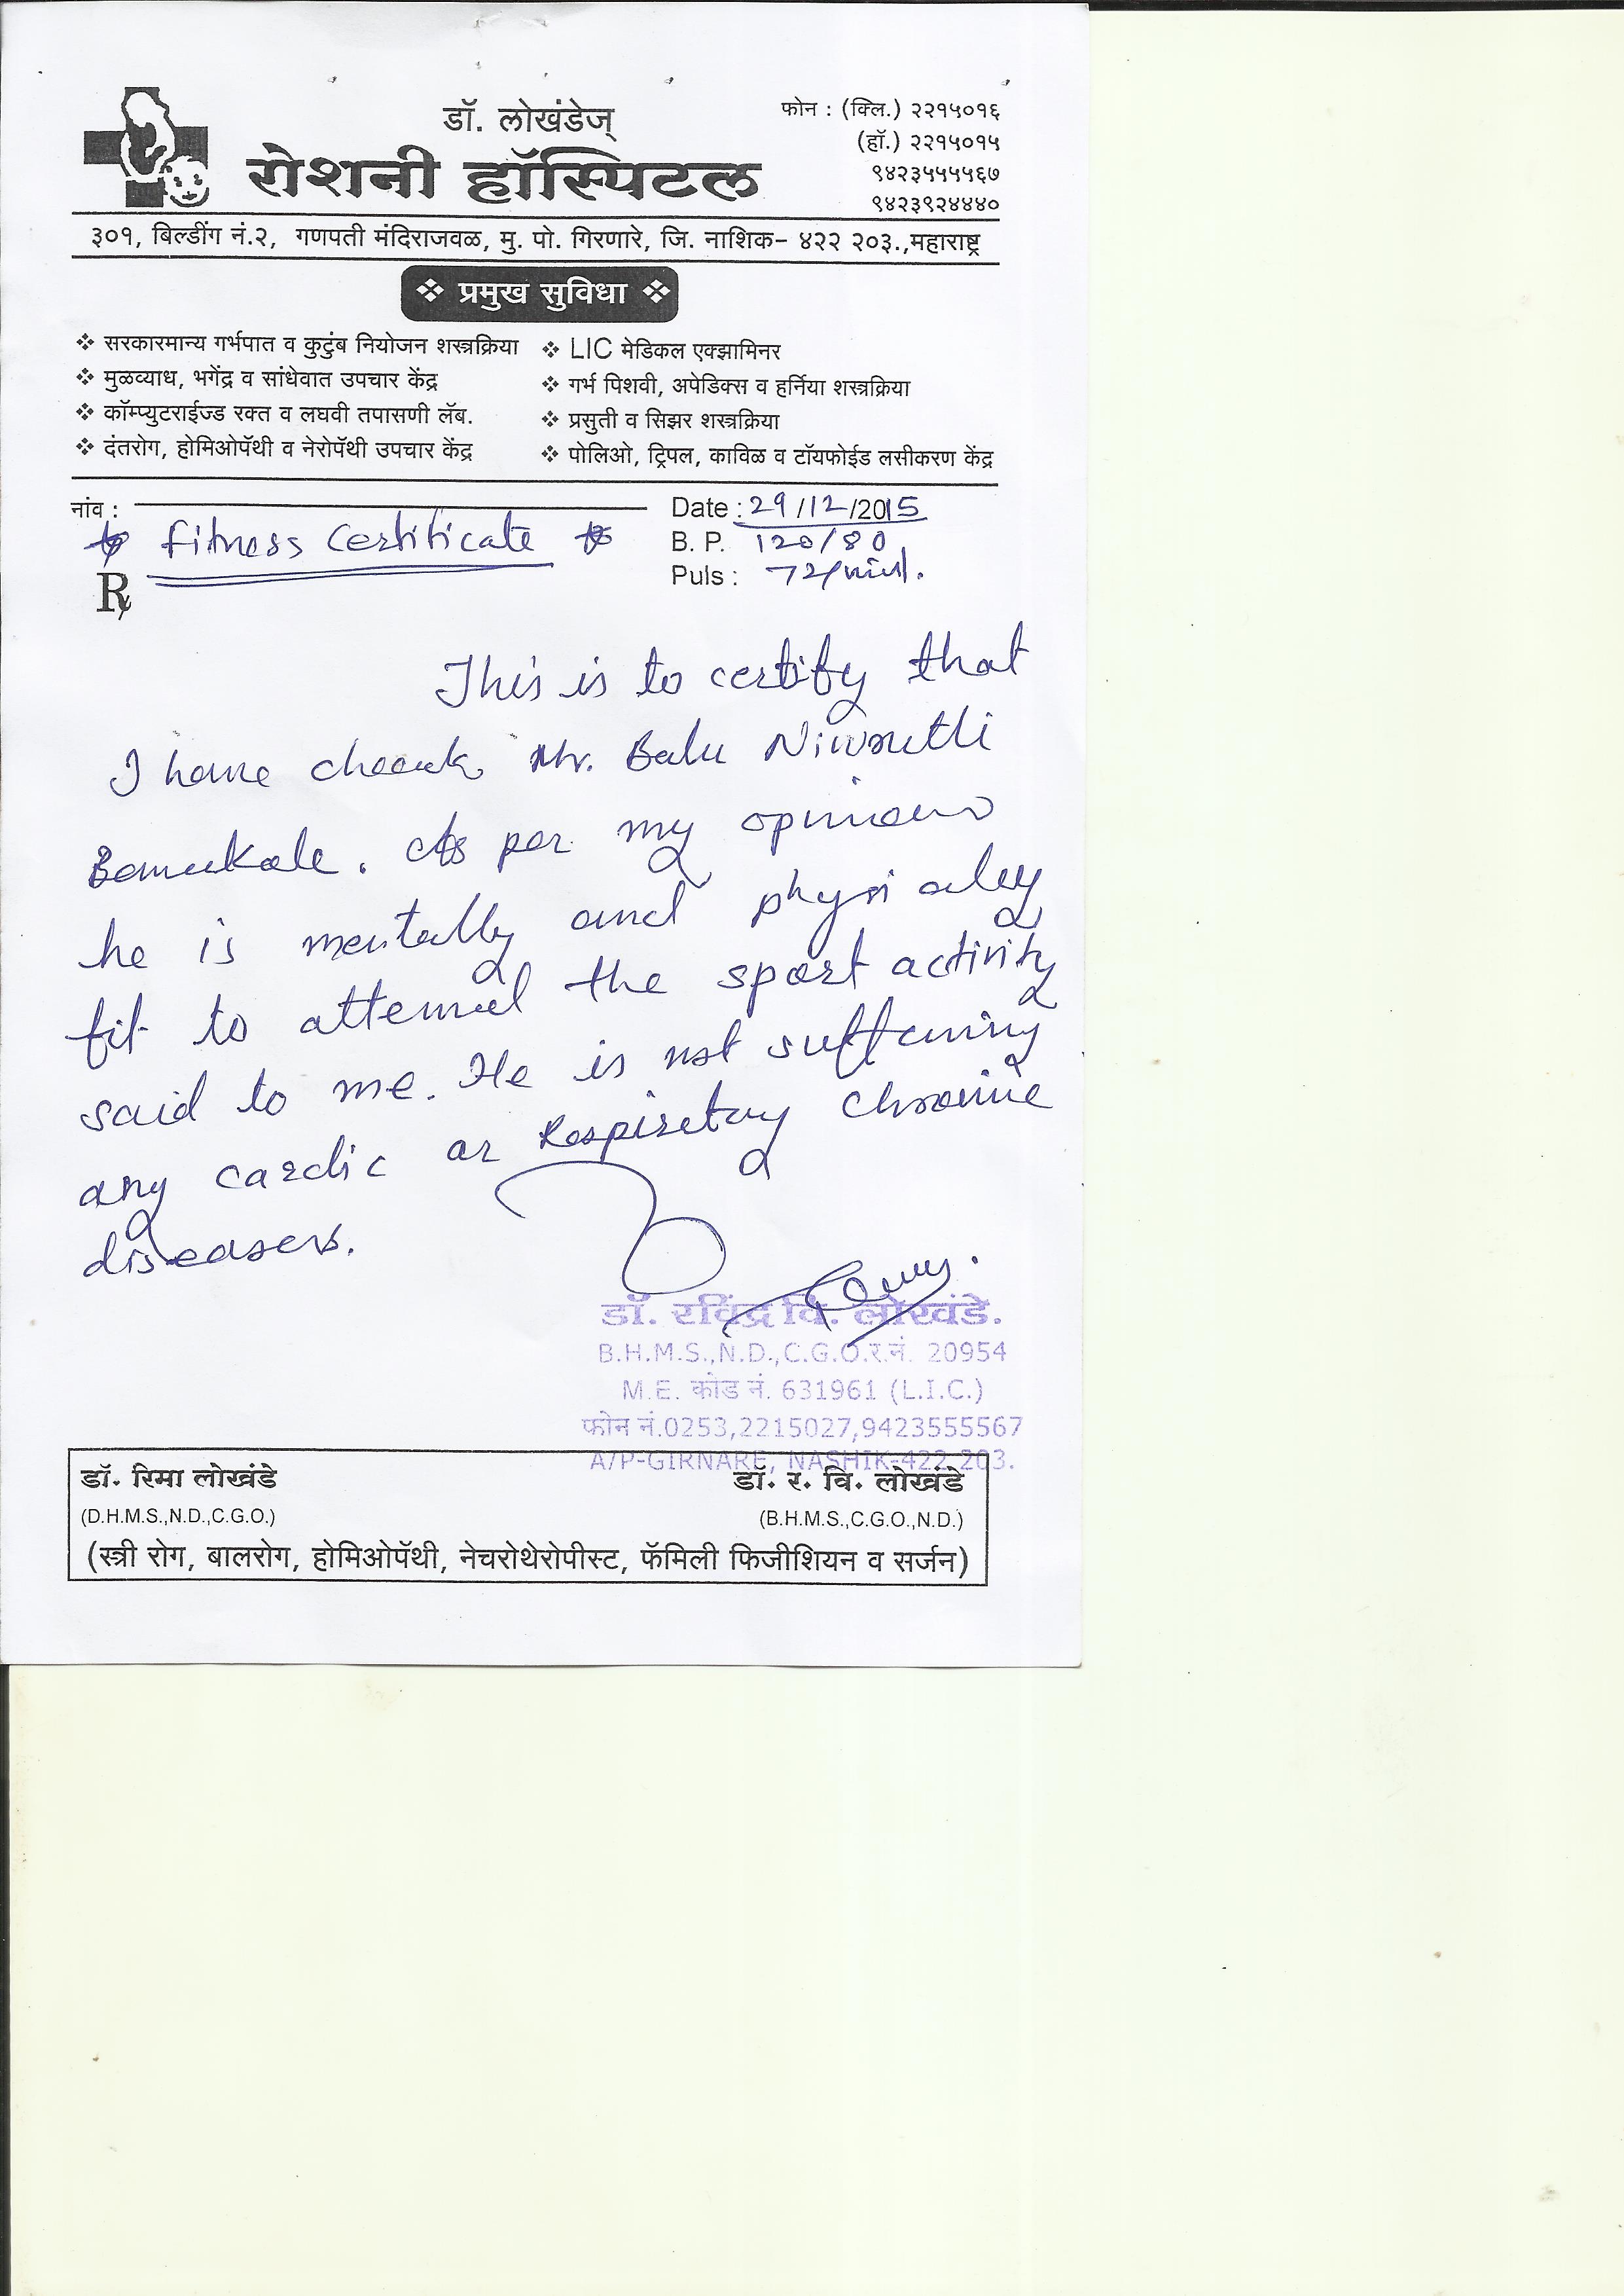 डॉ. लोखंडेज्
रोशनी हॉस्पिटल
फोन : (क्लि.) २२१५०१६
(हॉ.) २२१५०१५
९४२३५५५५६७
९४२३९२४४४०
३०१, बिल्डींग नं.२, गणपती मंदिराजवळ, मु. पो. गिरणारे, जि. नाशिक- ४२२ २०३.,महाराष्ट्र
❖ प्रमुख सुविधा ❖
❖ सरकारमान्य गर्भपात व कुटुंब नियोजन शस्त्रक्रिया
❖ मुळव्याध, भगेंद्र व सांधेवात उपचार केंद्र
❖ कॉम्प्युटराईज्ड रक्त व लघवी तपासणी लॅब.
❖ दंतरोग, होमिओपॅथी व नेरोपॅथी उपचार केंद्र
❖ LIC मेडिकल एक्झामिनर
❖ गर्भ पिशवी, अपेडिक्स व हर्निया शस्त्रक्रिया
❖ प्रसुती व सिझर शस्त्रक्रिया
❖ पोलिओ, ट्रिपल, काविळ व टॉयफोईड लसीकरण केंद्र
नांव :
Date : 29/12/2015
Fitness Certificate
B. P. 120/80
Puls : 72/min.
℞
This is to certify that
I have Mr. Balu Niwrutti
As per my opinion
he is mentally and physi aley
fit to attend the sport activity
said to me. He is not suffering
any cardic or Respiretory chronic
diseasers.
डॉ. रविंद्र वि. लोखंडे.
B.H.M.S.,N.D.,C.G.O.र.नं. 20954
M.E. कोड नं. 631961 (L.I.C.)
फोन नं.0253,2215027,9423555567
A/P-GIRNARE, NASHIK-422 203.
डॉ. रिमा लोखंडे
(D.H.M.S.,N.D.,C.G.O.)
डॉ. र. वि. लोखंडे
(B.H.M.S.,C.G.O.,N.D.)
(स्त्री रोग, बालरोग, होमिओपॅथी, नेचरोथेरोपीस्ट, फॅमिली फिजीशियन व सर्जन)